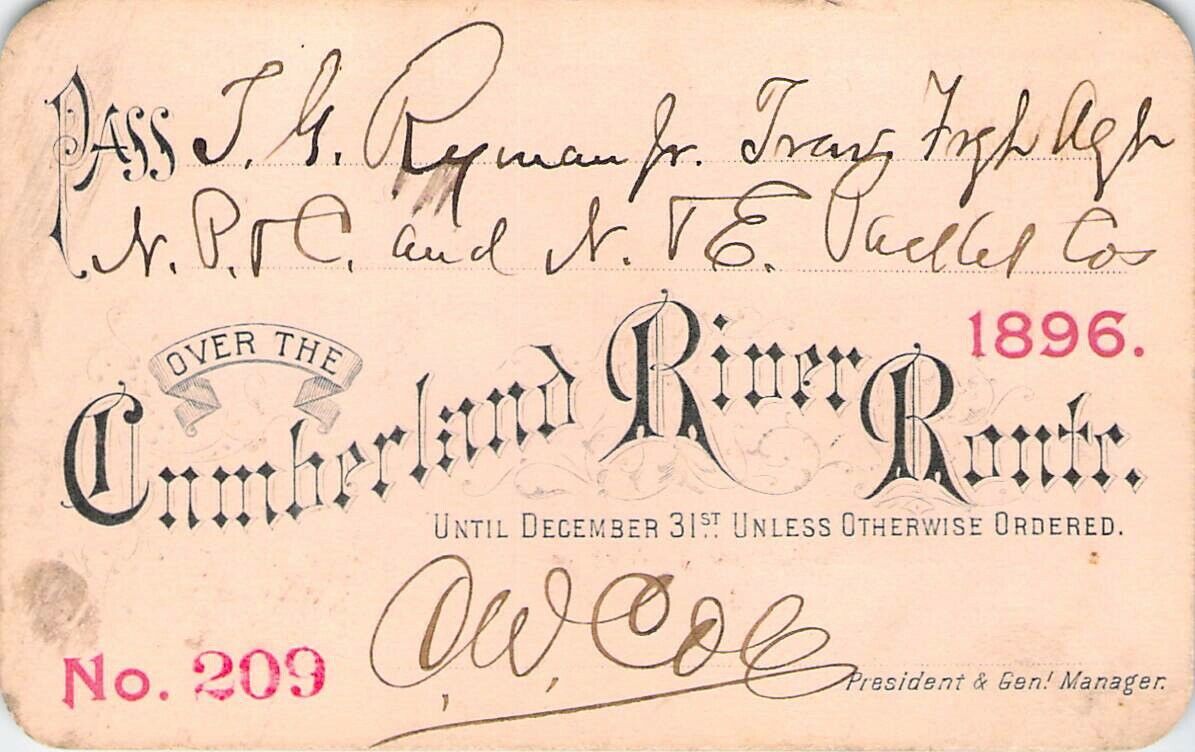 PASS T. G. Ryman Jr. Trav. Frgh Agh
N. P. & C. and N. & E. Packet Cos
1896.
OVER THE
Cumberland River Route.
UNTIL DECEMBER 31ST. UNLESS OTHERWISE ORDERED.
No. 209
President & Genl. Manager.